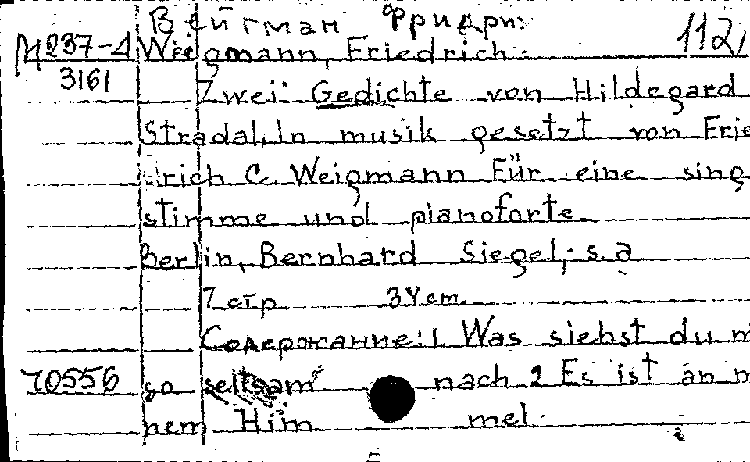 Вейгман Фридри
М237-4 Weigmann, Friedrich. 112
3161
Zwei Gedichte von Hildegard
Stradal. In musik gesetzt von Frie
drich C. Weigmann Für eine sing
stimme und pianoforte
Berlin, Bernhard Siegel, s. a
7 стр 34 cm
Содержание: 1 Was siehst du m
70556 so seltsam nach 2 Es ist an m
nem Him mel